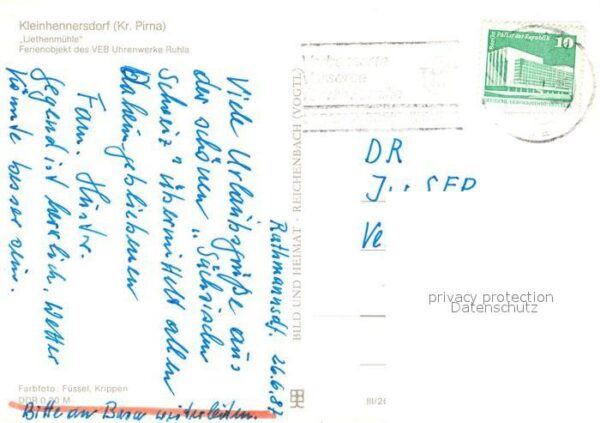 Kleinhennersdorf (Kr. Pirna)
„Liethenmühle"
Ferienobjekt des VEB Uhrenwerke Ruhla
Rathmannsdf. 26.6.87
Viele Urlaubsgrüße aus
der schönen „Sächsischen
Schweiz" übermittelt allen
Daheimgebliebenen
Fam.
Gegend ist herrlich, Wetter
könnte besser sein.
Bitte an weiterleiten.
Farbfoto: Füssel, Krippen
DDR 0,20 M
BILD UND HEIMAT · REICHENBACH (VOGTL)
Berlin Palast der Republik
10
DR
Ve
privacy protection
Datenschutz
III/26